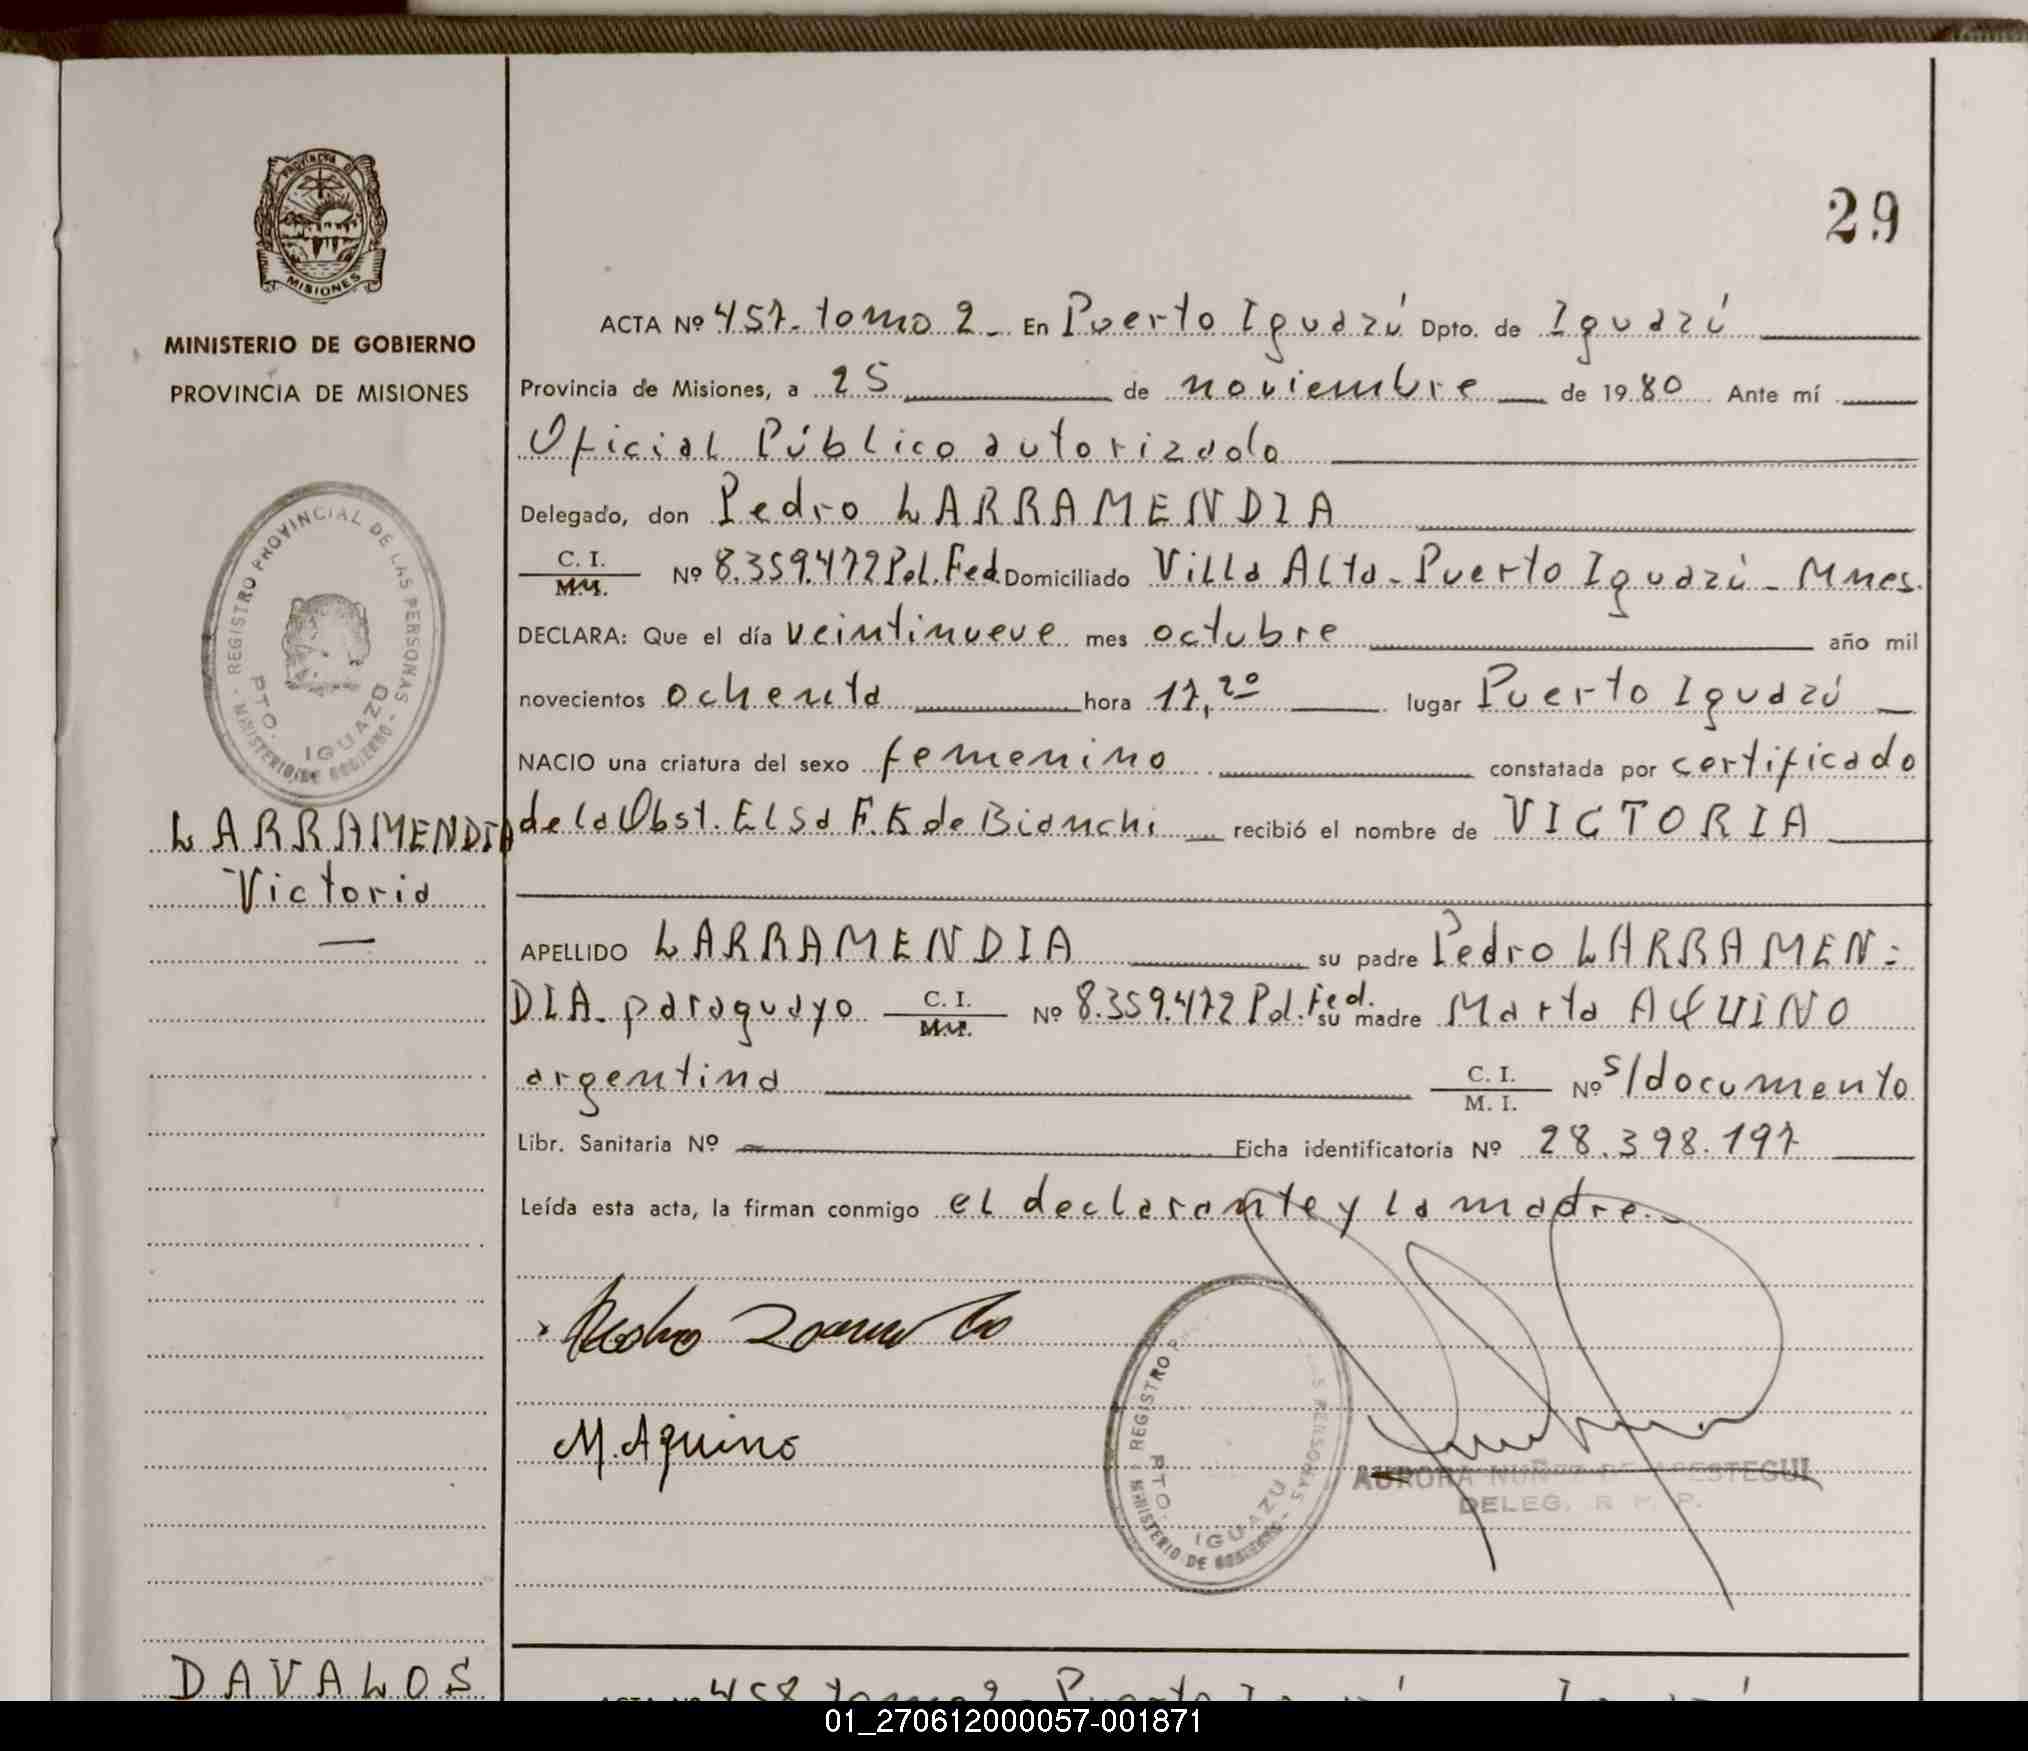 29
PROVINCIA DE
MISIONES
MINISTERIO DE GOBIERNO
PROVINCIA DE MISIONES
REGISTRO PROVINCIAL DE LAS PERSONAS
PTO. IGUAZU
MINISTERIO DE GOBIERNO
LARRAMENDIA
Victoria
ACTA Nº 457. tomo 2_ En Puerto Iguazú Dpto. de Iguazú
Provincia de Misiones, a 25 de noviembre de 1980 Ante mí
Oficial Público autorizado
Delegado, don Pedro LARRAMENDIA
C. I. M.I. Nº 8.359.472 Pol. Fed. Domiciliado Villa Alta - Puerto Iguazú - Mnes.
DECLARA: Que el día veintinueve mes octubre año mil
novecientos ochenta hora 17,20 lugar Puerto Iguazú
NACIO una criatura del sexo femenino constatada por certificado
de la Obst. Elsa F. K de Bianchi recibió el nombre de VICTORIA
APELLIDO LARRAMENDIA su padre Pedro LARRAMEN=
DIA. paraguayo C. I. M.I. Nº 8.359.472 Pol. Fed. su madre Marta AQUINO
argentina C. I. M. I. Nº s/documento
Libr. Sanitaria Nº Ficha identificatoria Nº 28.398.197
Leída esta acta, la firman conmigo el declarante y la madre.
Pedro
M. Aquino
REGISTRO P PERSONAS
PTO. IGUAZU
MINISTERIO DE GOBIERNO
AURORA NUÑEZ DE ARESTEGUI
DELEG. R. P. P.
DAVALOS
ACTA Nº 458 tomo 2 - Puerto
01_270612000057-001871